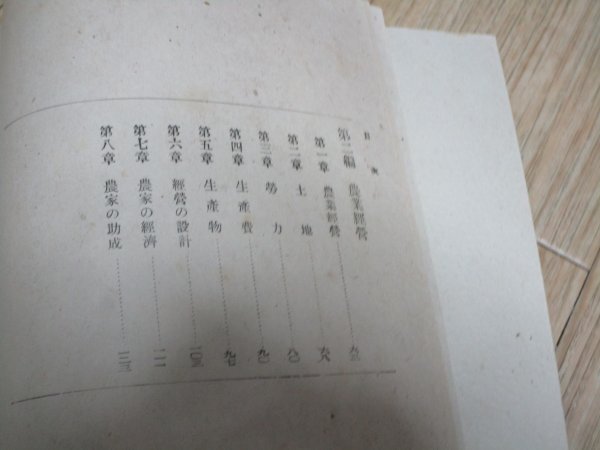 目次
第二編 農業經營
第一章 農業經營
第二章 土地
第三章 勞力
第四章 生產費……九七
第五章 生產物……一〇三
第六章 經營の設計
第七章 農家の經濟……一一一
第八章 農家の助成……一二三